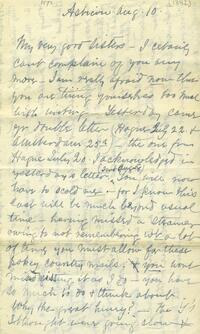 Astrium Aug. 10.
My very good sisters – I certainly
cant complain of you any
more – I am really afraid now that
you are tiring yourselves too much
with writing – Yesterday came
yr double letter (Hague July 22 &
Amsterdam 25th) – the one from
Hague July 20 I acknowledged in
yesterday's letter. You will now
have to scold me – for I know this
last will be much beyond usual
time – having missed a steamer
owing to not remembering wt a lot
of time you must allow for these
pokey country mails. & you wont
mind waiting, it was I do – you have
so much to do & think about.
Why the great hurry? – The J's
I thought were going slow &